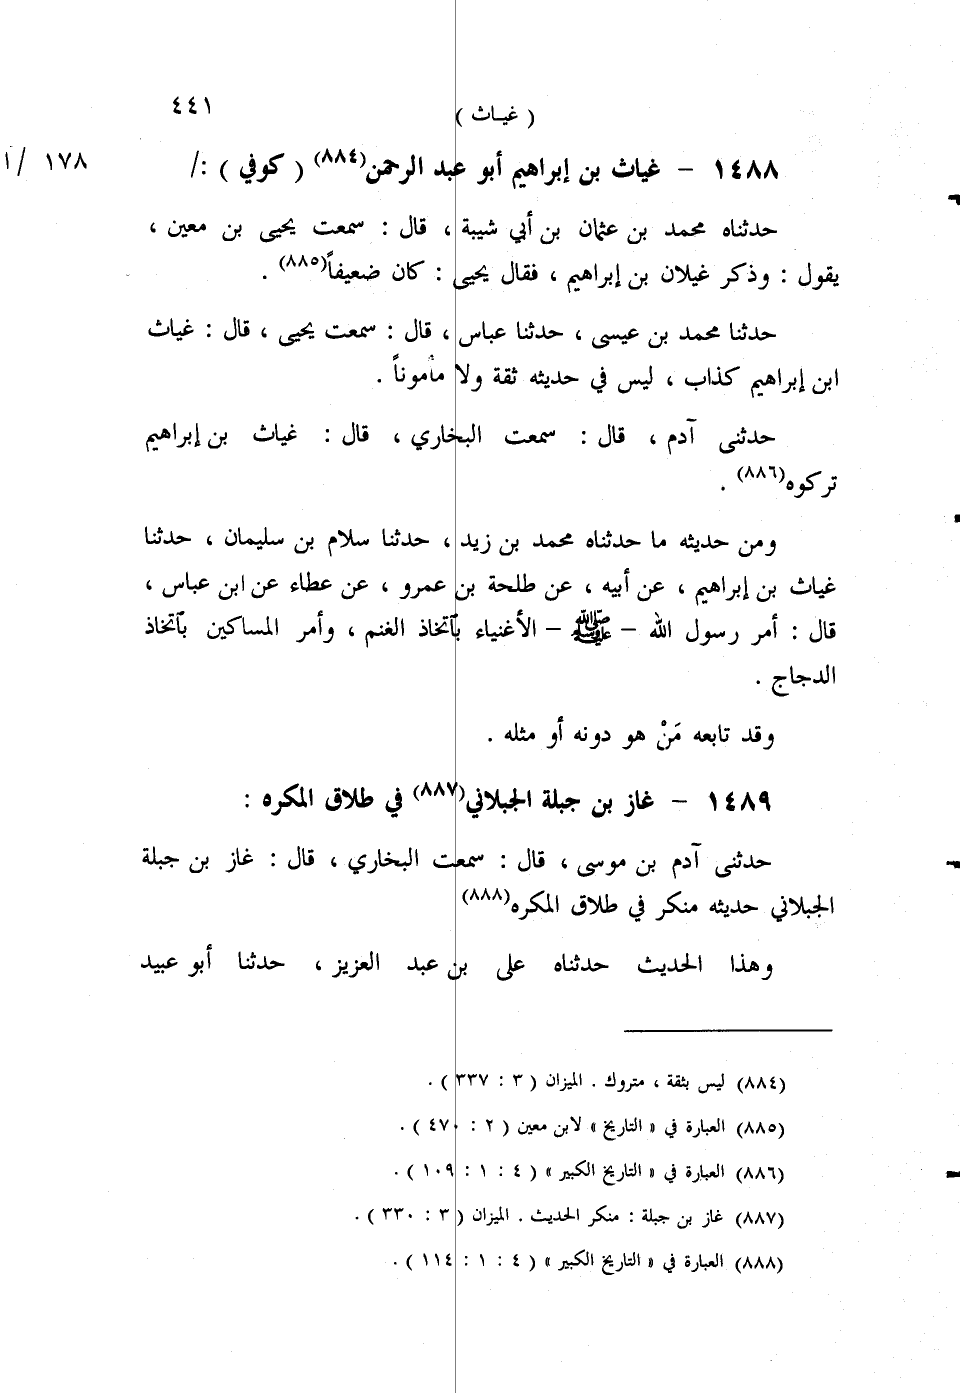 ( غيــاث )
٤٤١
١٤٨٨ – غياث بن إبراهيم أبو عبد الرحمن(٨٨٤) ( كوفي ) :/
١٧٨ /١
حدثناه محمد بن عثمان بن أبي شيبة ، قال : سمعت يحيى بن معين ،
يقول : وذكر غيلان بن إبراهيم ، فقال يحيى : كان ضعيفاً(٨٨٥) .
حدثنا محمد بن عيسى ، حدثنا عباس ، قال : سمعت يحيى ، قال : غياث
ابن إبراهيم كذاب ، ليس في حديثه ثقة ولا مأموناً .
حدثنى آدم ، قال : سمعت البخاري ، قال : غياث بن إبراهيم
تركوه(٨٨٦) .
ومن حديثه ما حدثناه محمد بن زيد ، حدثنا سلام بن سليمان ، حدثنا
غياث بن إبراهيم ، عن أبيه ، عن طلحة بن عمرو ، عن عطاء عن ابن عباس ،
قال : أمر رسول الله – ﷺ – الأغنياء بآتخاذ الغنم ، وأمر المساكين بآتخاذ
الدجاج .
وقد تابعه مَنْ هو دونه أو مثله .
١٤٨٩ – غاز بن جبلة الجبلاني(٨٨٧) في طلاق المكره :
حدثنى آدم بن موسى ، قال : سمعت البخاري ، قال : غاز بن جبلة
الجبلاني حديثه منكر في طلاق المكره(٨٨٨)
وهذا الحديث حدثناه على بن عبد العزيز ، حدثنا أبو عبيد
(٨٨٤) ليس بثقة ، متروك . الميزان ( ٣ : ٣٣٧ ) .
(٨٨٥) العبارة في « التاريخ » لابن معين ( ٢ : ٤٧٠ ) .
(٨٨٦) العبارة في « التاريخ الكبير » ( ٤ : ١ : ١٠٩ ) .
(٨٨٧) غاز بن جبلة : منكر الحديث . الميزان ( ٣ : ٣٣٠ ) .
(٨٨٨) العبارة في « التاريخ الكبير » ( ٤ : ١ : ١١٤ ) .